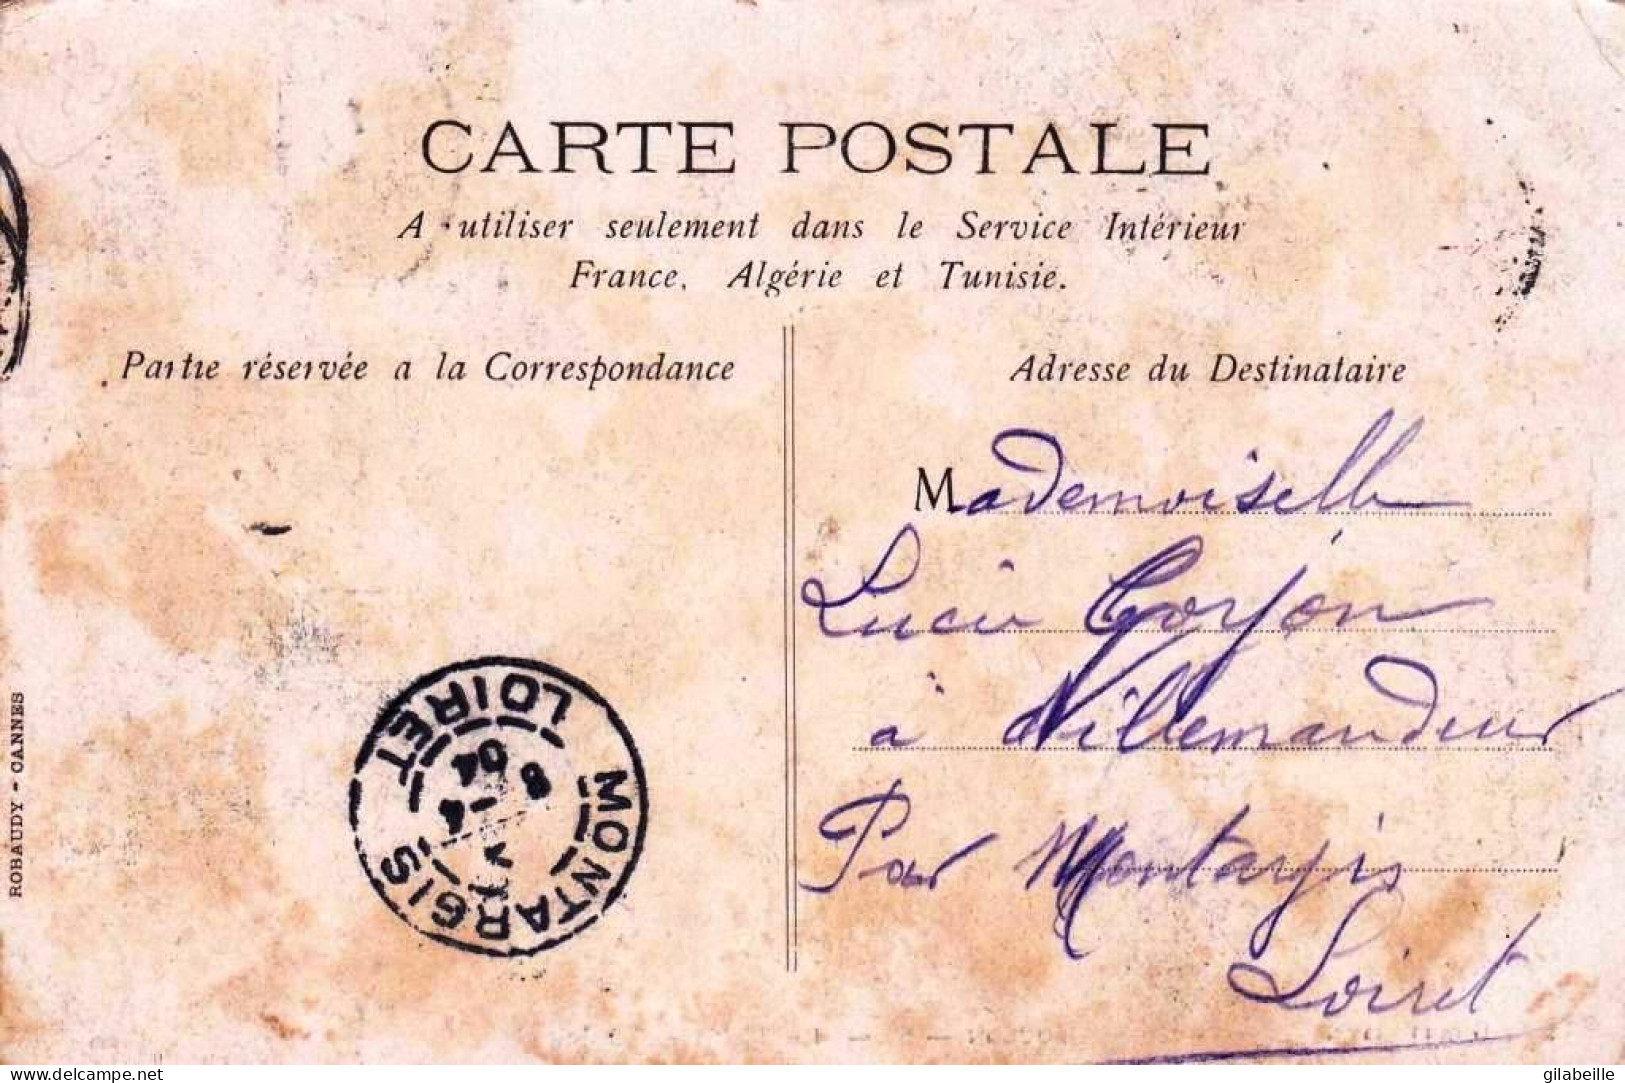 CARTE POSTALE
A utiliser seulement dans le Service Intérieur
France, Algérie et Tunisie.
Partie réservée a la Correspondance
Adresse du Destinataire
Mademoiselle
Lucie Gorjon
à Villemandeur
Par Montargis
Loiret
MONTARGIS
LOIRET
8
04
ROBAUDY - CANNES
delcampe.net
gilabeille